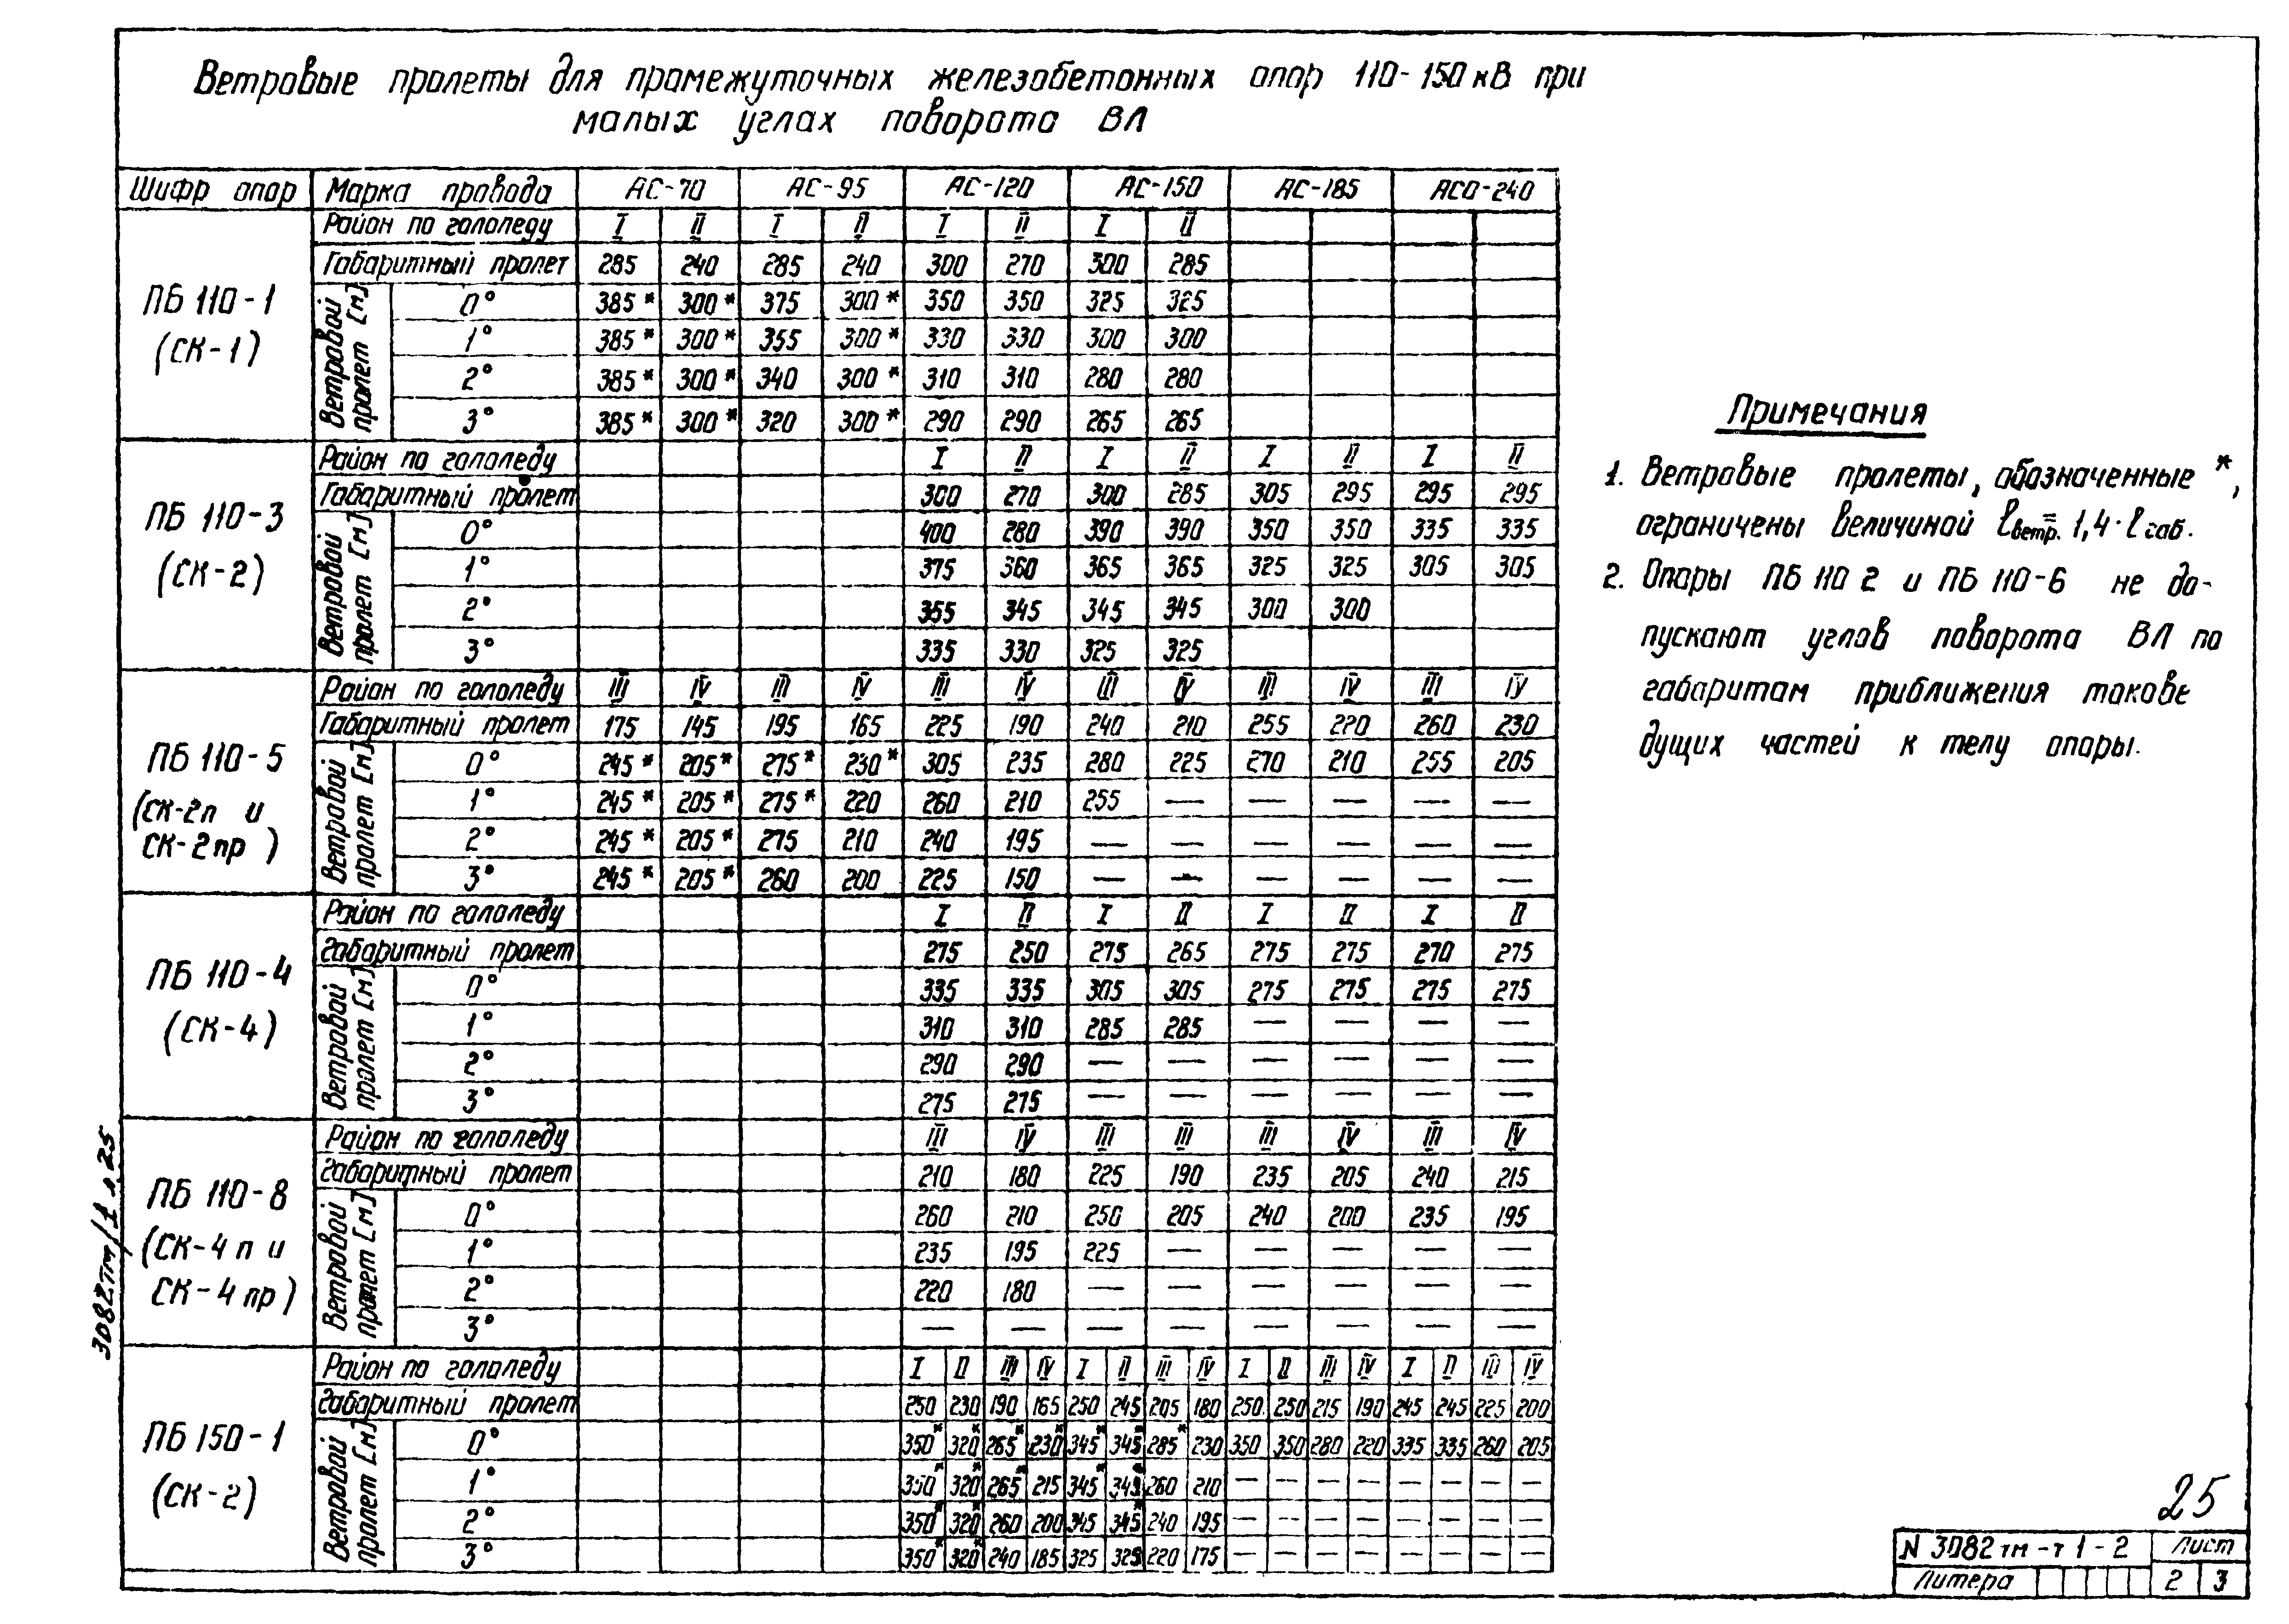 Ветровые пролеты для промежуточных железобетонных опор 110-150 кВ при
малых углах поворота ВЛ
Шифр опор Марка провода АС-70 АС-95 АС-120 АС-150 АС-185 АСО-240
ПБ 110-1
(СК-1)
Район по гололеду I II I II I II I II
Габаритный пролет 285 240 285 240 300 270 300 285
Ветровой пролет [м]
0° 385* 300* 375 300* 350 350 325 325
1° 385* 300* 355 300* 330 330 300 300
2° 385* 300* 340 300* 310 310 280 280
3° 385* 300* 320 300* 290 290 265 265
ПБ 110-3
(СК-2)
Район по гололеду I II I II I II I II
Габаритный пролет 300 270 300 285 305 295 295 295
Ветровой пролет [м]
0° 400 280 390 390 350 350 335 335
1° 375 360 365 365 325 325 305 305
2° 355 345 345 345 300 300
3° 335 330 325 325
ПБ 110-5
(СК-2п и
СК-2пр)
Район по гололеду III IV III IV III IV III IV III IV III IV
Габаритный пролет 175 145 195 165 225 190 240 210 255 220 260 230
Ветровой пролет [м]
0° 245* 205* 275* 230* 305 235 280 225 270 210 255 205
1° 245* 205* 275* 220 260 210 255 — — — — —
2° 245* 205* 275 210 240 195 — — — — — —
3° 245* 205* 260 200 225 150 — — — — — —
ПБ 110-4
(СК-4)
Район по гололеду I II I II I II I II
Габаритный пролет 275 250 275 265 275 275 270 275
Ветровой пролет [м]
0° 335 335 305 305 275 275 275 275
1° 310 310 285 285 — — — —
2° 290 290 — — — — — —
3° 275 275 — — — — — —
ПБ 110-8
(СК-4п и
СК-4пр)
Район по гололеду III IV III III III IV III IV
Габаритный пролет 210 180 225 190 235 205 240 215
Ветровой пролет [м]
0° 260 210 250 205 240 200 235 195
1° 235 195 225 — — — — —
2° 220 180 — — — — — —
3° — — — — — — — —
ПБ 150-1
(СК-2)
Район по гололеду I II III IV I II III IV I II III IV I II III IV
Габаритный пролет 250 230 190 165 250 245 205 180 250 250 215 190 245 245 225 200
Ветровой пролет [м]
0° 350* 320* 265* 230* 345* 345* 285* 230 350 350 280 220 335 335 260 205
1° 350* 320* 265* 215 345* 345* 260 210 — — — — — — — —
2° 350* 320* 260 200 345 345* 240 195 — — — — — — — —
3° 350* 320* 240 185 325 325 220 175 — — — — — — — —
Примечания
1. Ветровые пролеты, обозначенные *,
ограничены величиной lветр.= 1,4·lгаб.
2. Опоры ПБ 110 2 и ПБ 110-6 не до-
пускают углов поворота ВЛ по
габаритам приближения токове
дущих частей к телу опоры.
3082тм/1 л.25
25
N 3082тм-т1-2 Лист
Литера 2 3